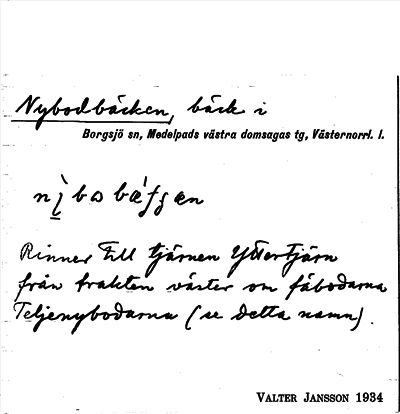 Nybodbäcken, bäck i
Borgsjö sn, Medelpads västra domsagas tg, Västernorrl. l.
Rinner till tjärnen Yttertjärn
från trakten väster om fäbodarna
Teljenybodarna (se detta namn).
VALTER JANSSON 1934